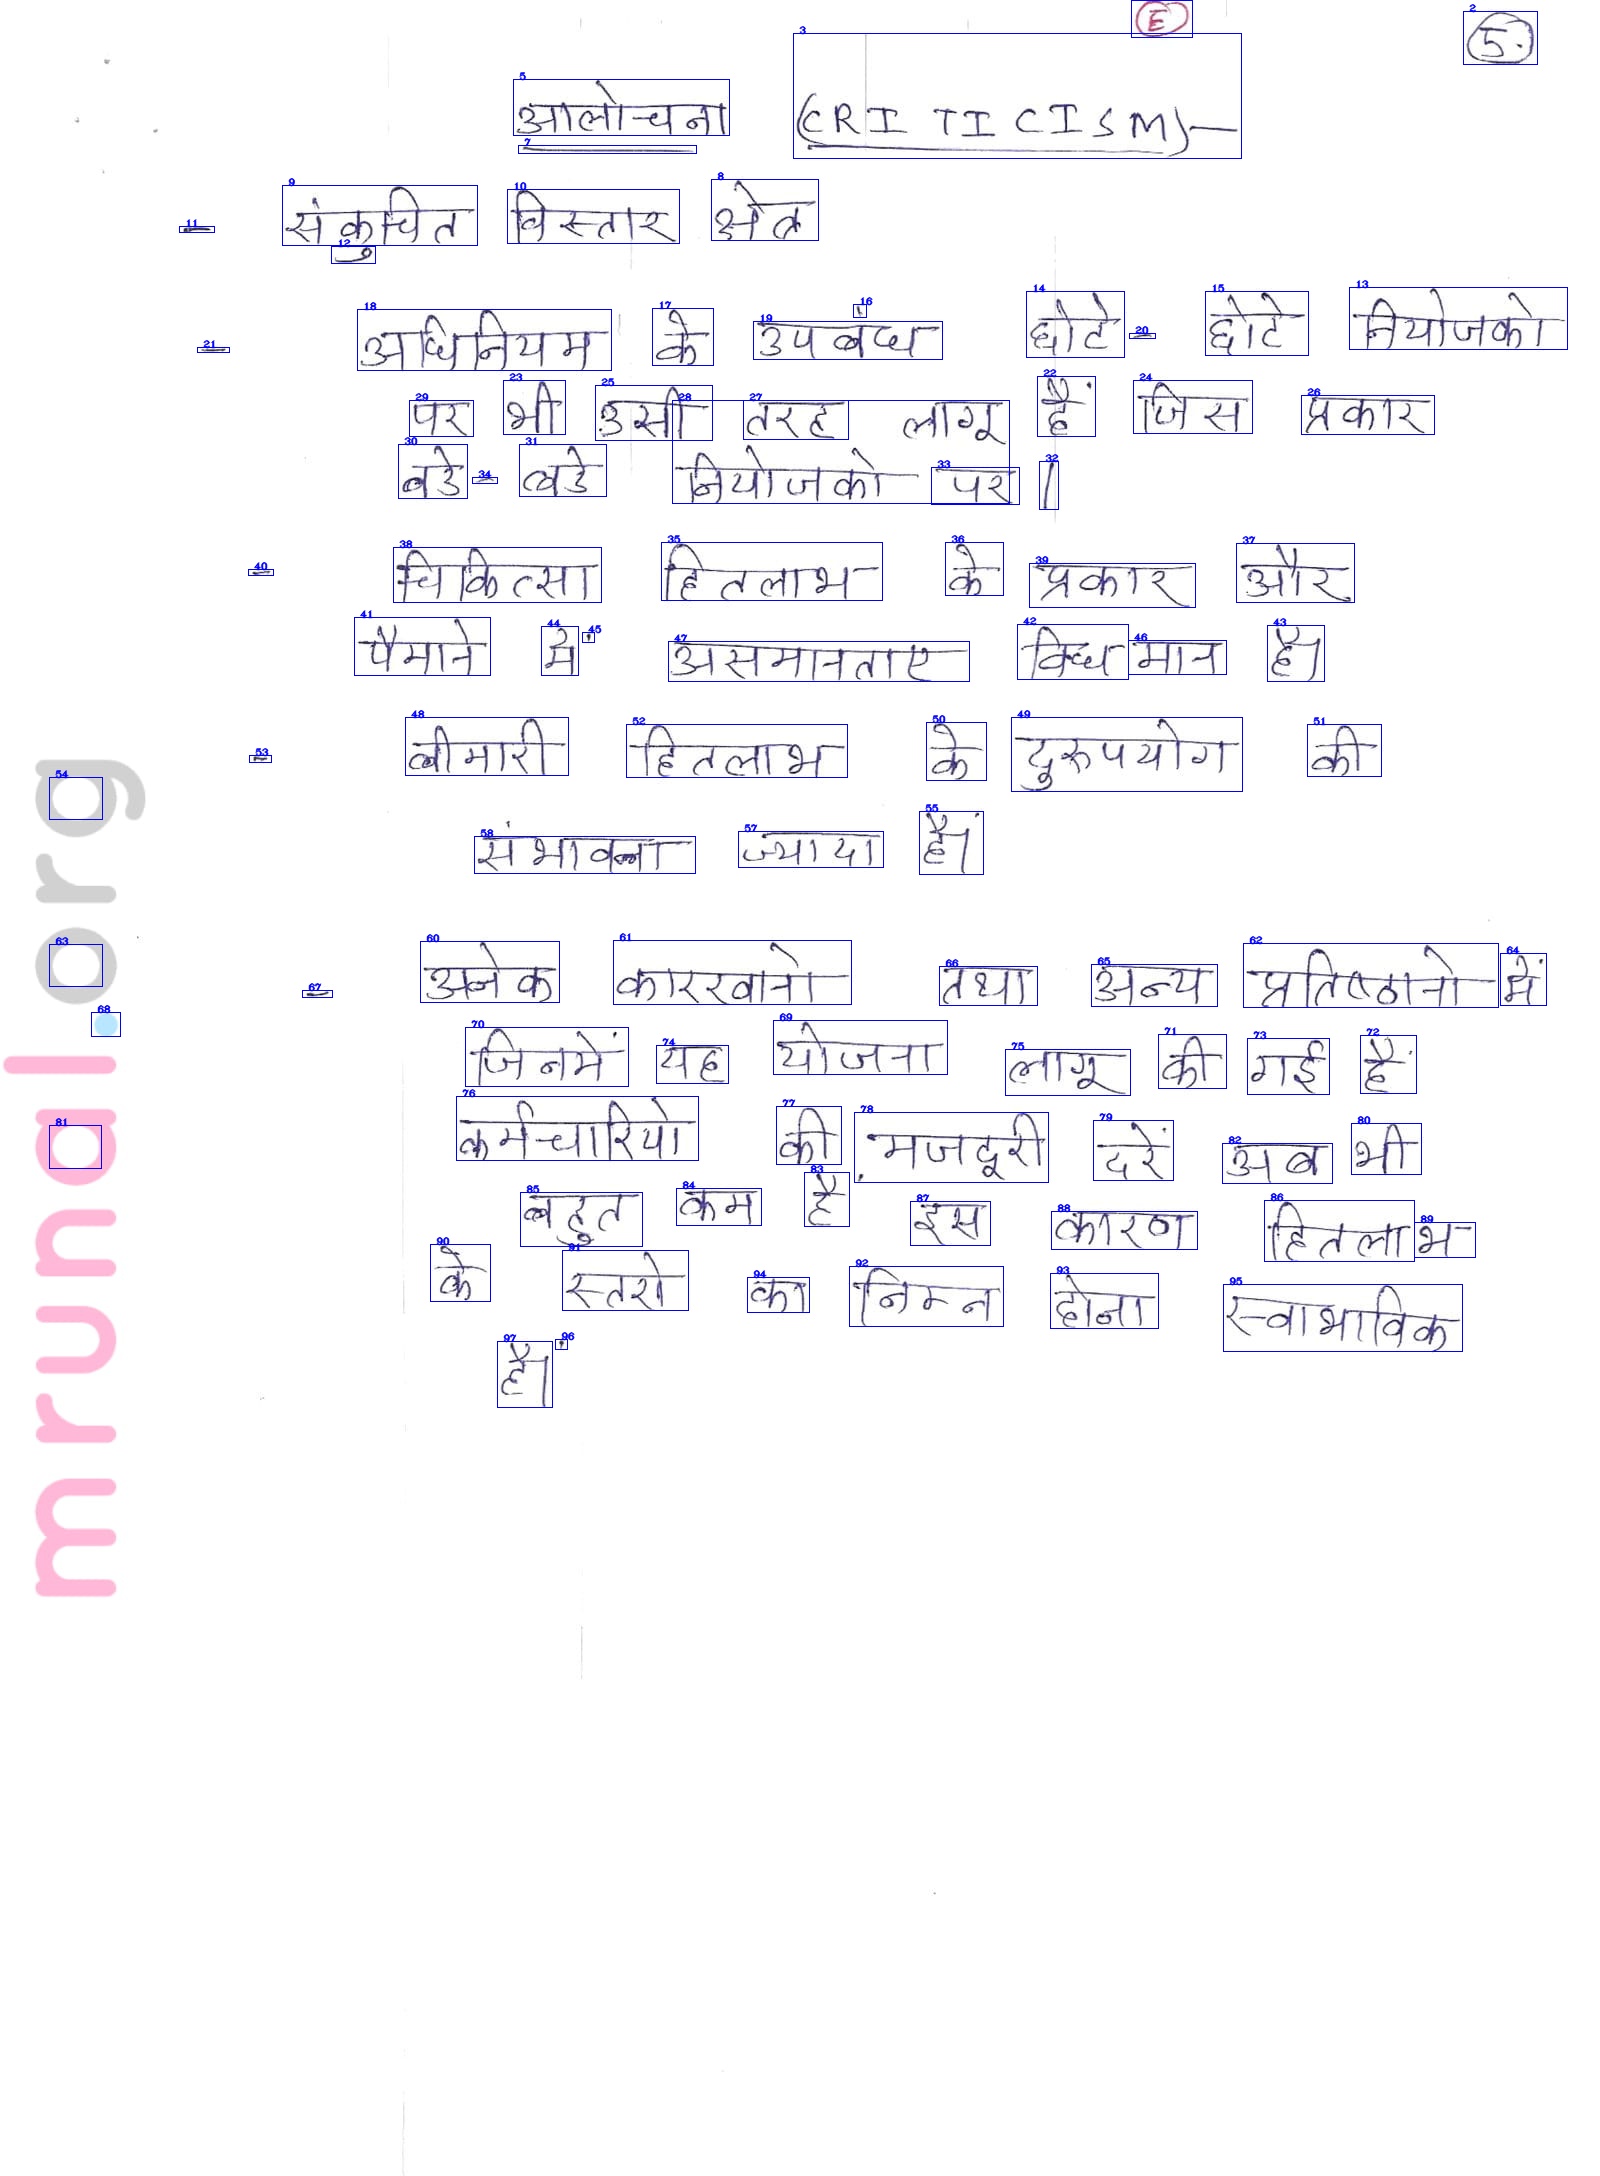 E 5.
आलोचना (CRITICISM)—
— संकुचित विस्तार क्षेत्र
— अधिनियम के उपबंध छोटे-छोटे नियोजको
पर भी उसी तरह लागू हैं जिस प्रकार
बडे-बडे नियोजको पर |
— चिकित्सा हितलाभ के प्रकार और
पैमाने में असमानताए विध्यमान है।
— बीमारी हितलाभ के दुरुपयोग की
संभावना ज्यादा हैं।
— अनेक कारखानो तथा अन्य प्रतिष्ठानो में
जिनमें यह योजना लागू की गई हैं
कर्मचारियो की मजदूरी दरें अब भी
बहुत कम है इस कारण हितलाभ
के स्तरो का निम्न होना स्वाभाविक
हैं।
mrunal.org